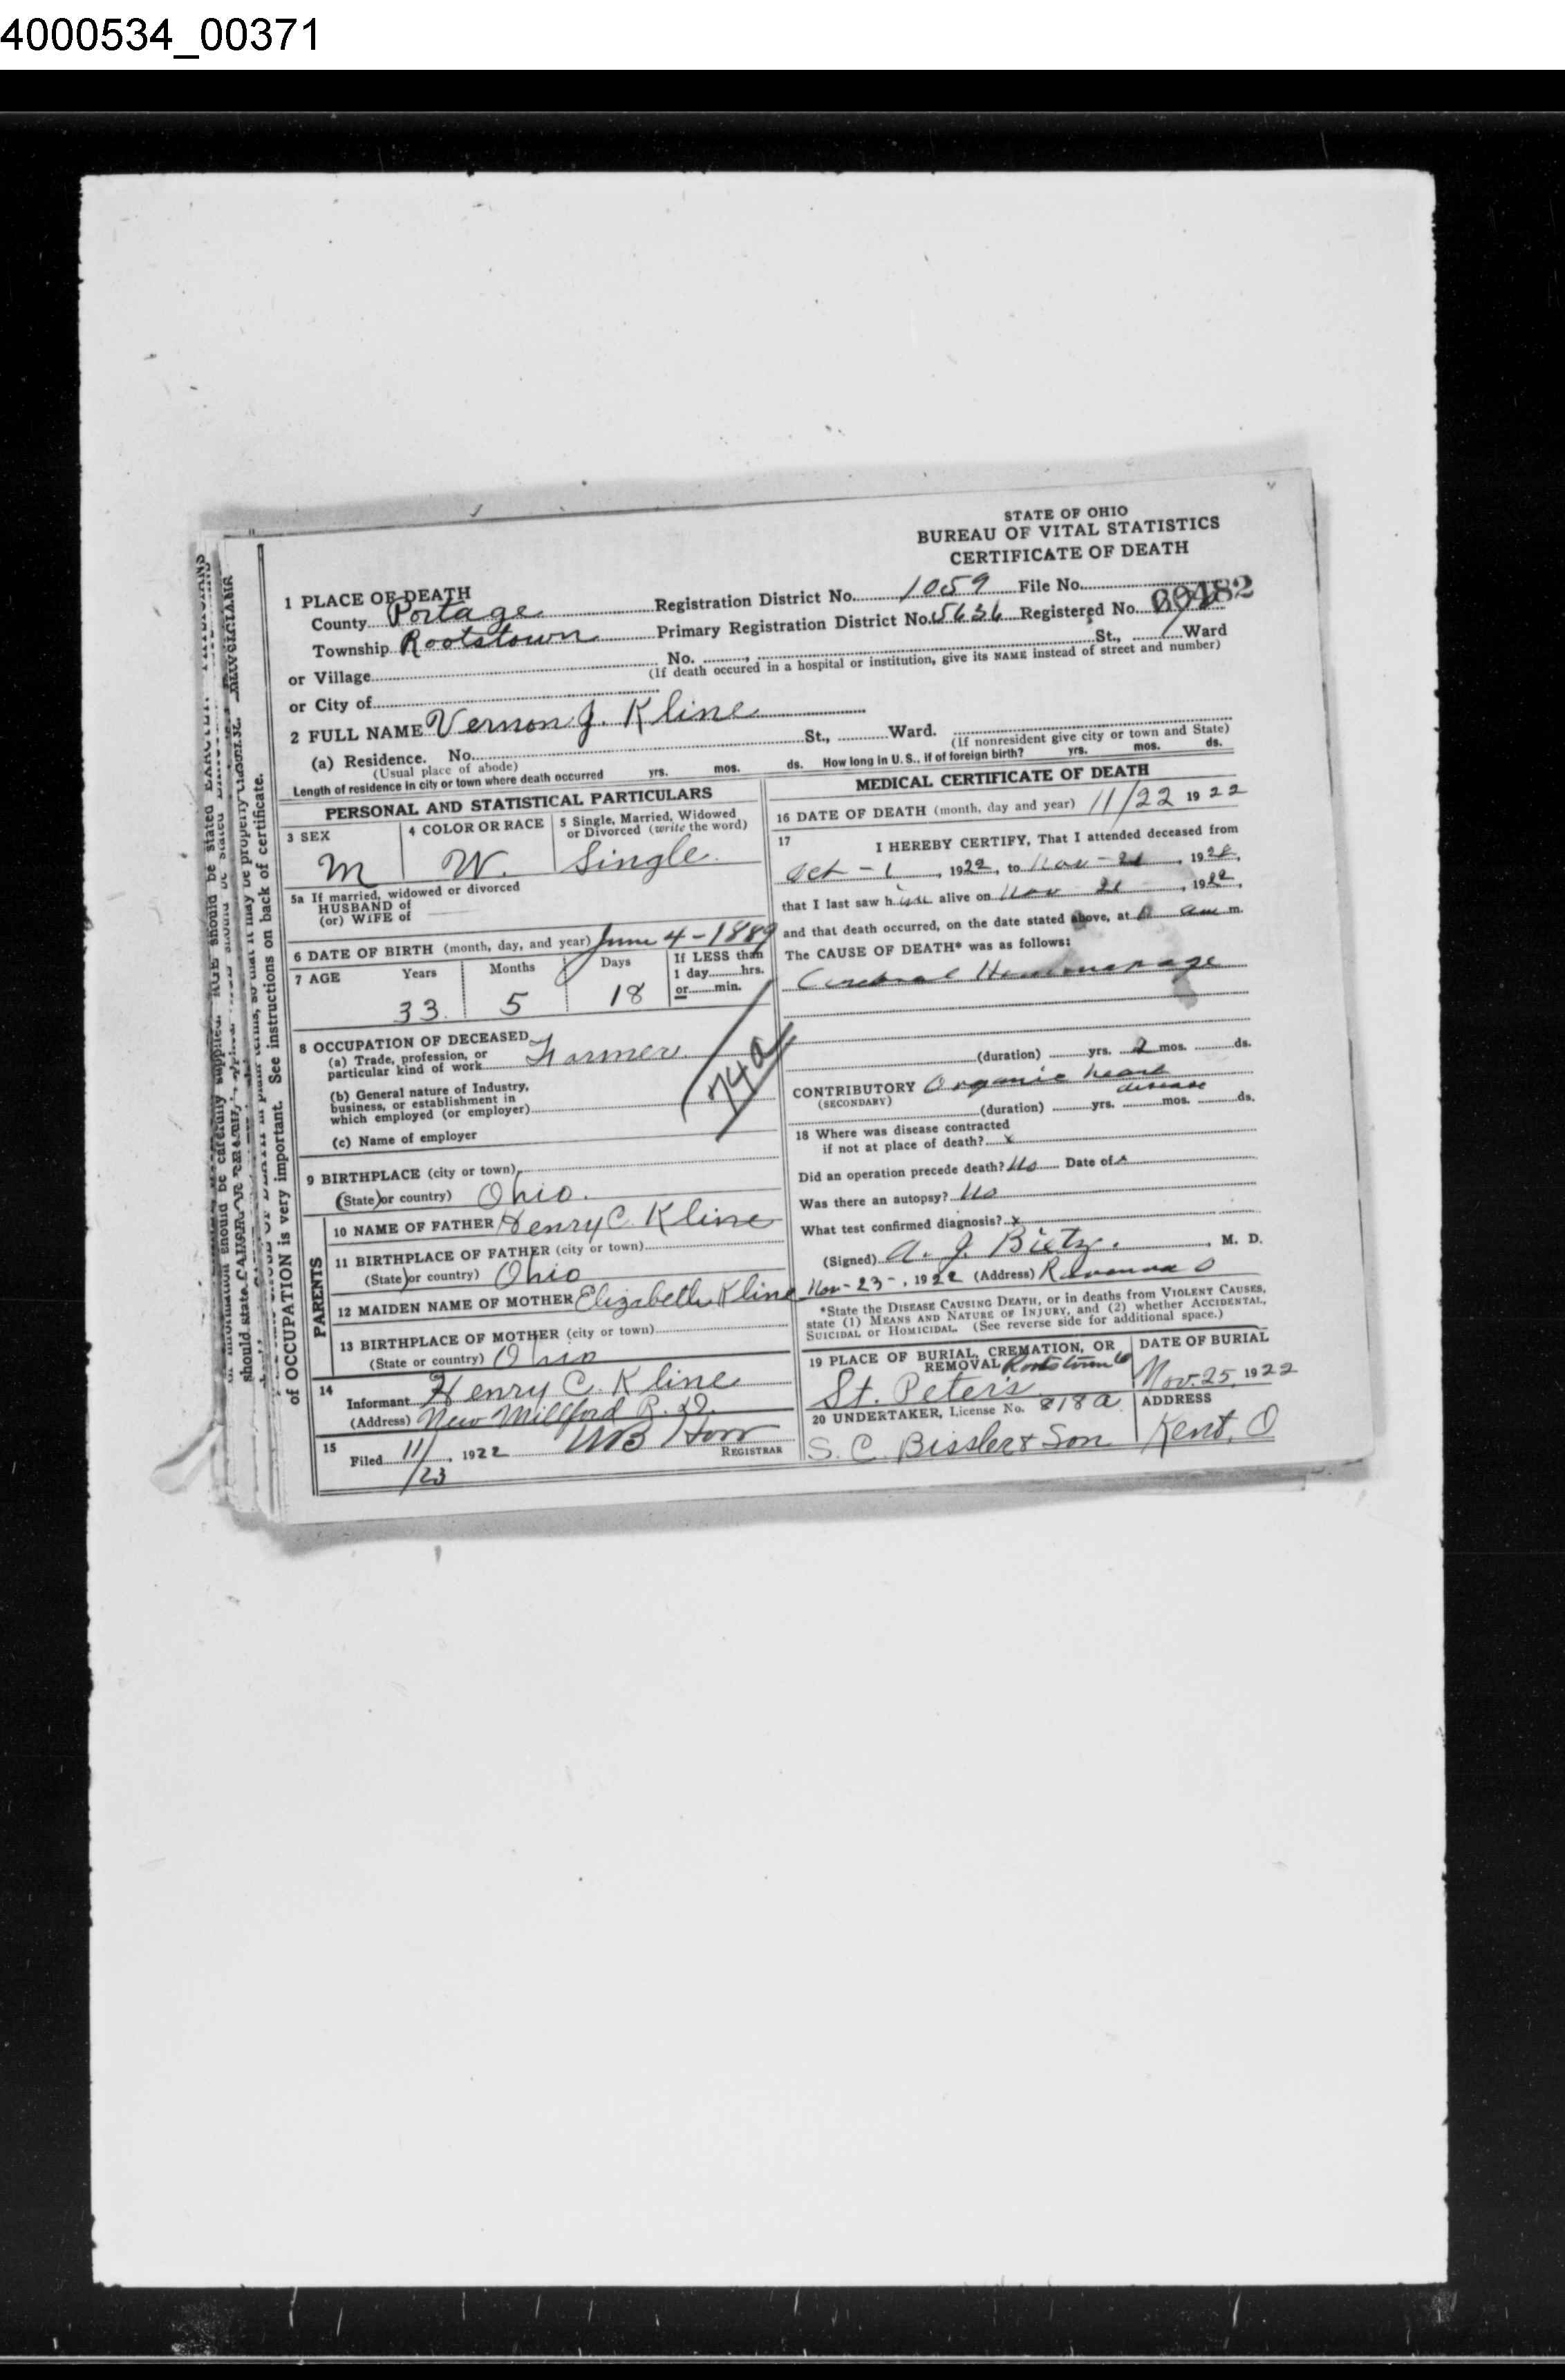 4000534_00371
STATE OF OHIO
BUREAU OF VITAL STATISTICS
CERTIFICATE OF DEATH
1 PLACE OF DEATH
County Portage Registration District No. 1059 File No.
Township Rootstown Primary Registration District No. 5636 Registered No.
or Village No. St., Ward
(If death occured in a hospital or institution, give its NAME instead of street and number)
or City of
2 FULL NAME Vernon J. Kline
(a) Residence. No. St., Ward.
(Usual place of abode) (If nonresident give city or town and State)
Length of residence in city or town where death occurred yrs. mos. ds. How long in U. S., if of foreign birth? yrs. mos. ds.
PERSONAL AND STATISTICAL PARTICULARS
3 SEX
M
4 COLOR OR RACE
W.
5 Single, Married, Widowed
or Divorced (write the word)
Single
5a If married, widowed or divorced
HUSBAND of
(or) WIFE of
6 DATE OF BIRTH (month, day, and year) June 4-1889
7 AGE Years Months Days If LESS than
1 day hrs.
or min.
33 5 18
8 OCCUPATION OF DECEASED
(a) Trade, profession, or
particular kind of work Farmer
(b) General nature of Industry,
business, or establishment in
which employed (or employer)
(c) Name of employer
74a
9 BIRTHPLACE (city or town)
(State or country) Ohio.
PARENTS
10 NAME OF FATHER Henry C. Kline
11 BIRTHPLACE OF FATHER (city or town)
(State or country) Ohio
12 MAIDEN NAME OF MOTHER Elizabeth Kline
13 BIRTHPLACE OF MOTHER (city or town)
(State or country) Ohio
14
Informant Henry C. Kline
(Address) New Millford R. D.
15
Filed 11/23, 1922
REGISTRAR
MEDICAL CERTIFICATE OF DEATH
16 DATE OF DEATH (month, day and year) 11/22 1922
17 I HEREBY CERTIFY, That I attended deceased from
Oct - 1, 1922, to Nov - 21, 1922,
that I last saw him alive on Nov 21, 1922,
and that death occurred, on the date stated above, at am m.
The CAUSE OF DEATH* was as follows:
Cerebral Hemmorage
(duration) yrs. 2 mos. ds.
CONTRIBUTORY Organic heart
disease
(SECONDARY)
(duration) yrs. mos. ds.
18 Where was disease contracted
if not at place of death? x
Did an operation precede death? No Date of x
Was there an autopsy? No
What test confirmed diagnosis? x
(Signed) A. J. Bietz. , M. D.
Nov-23-, 1922 (Address) Ravenna O
*State the DISEASE CAUSING DEATH, or in deaths from VIOLENT CAUSES,
state (1) MEANS AND NATURE OF INJURY, and (2) whether ACCIDENTAL,
SUICIDAL or HOMICIDAL. (See reverse side for additional space.)
19 PLACE OF BURIAL, CREMATION, OR
REMOVAL Rootstown
St. Peter's
DATE OF BURIAL
Nov. 25, 1922
20 UNDERTAKER, License No. 818a
S. C. Bissler & Son
ADDRESS
Kent, O
of OCCUPATION is very important. See instructions on back of certificate.